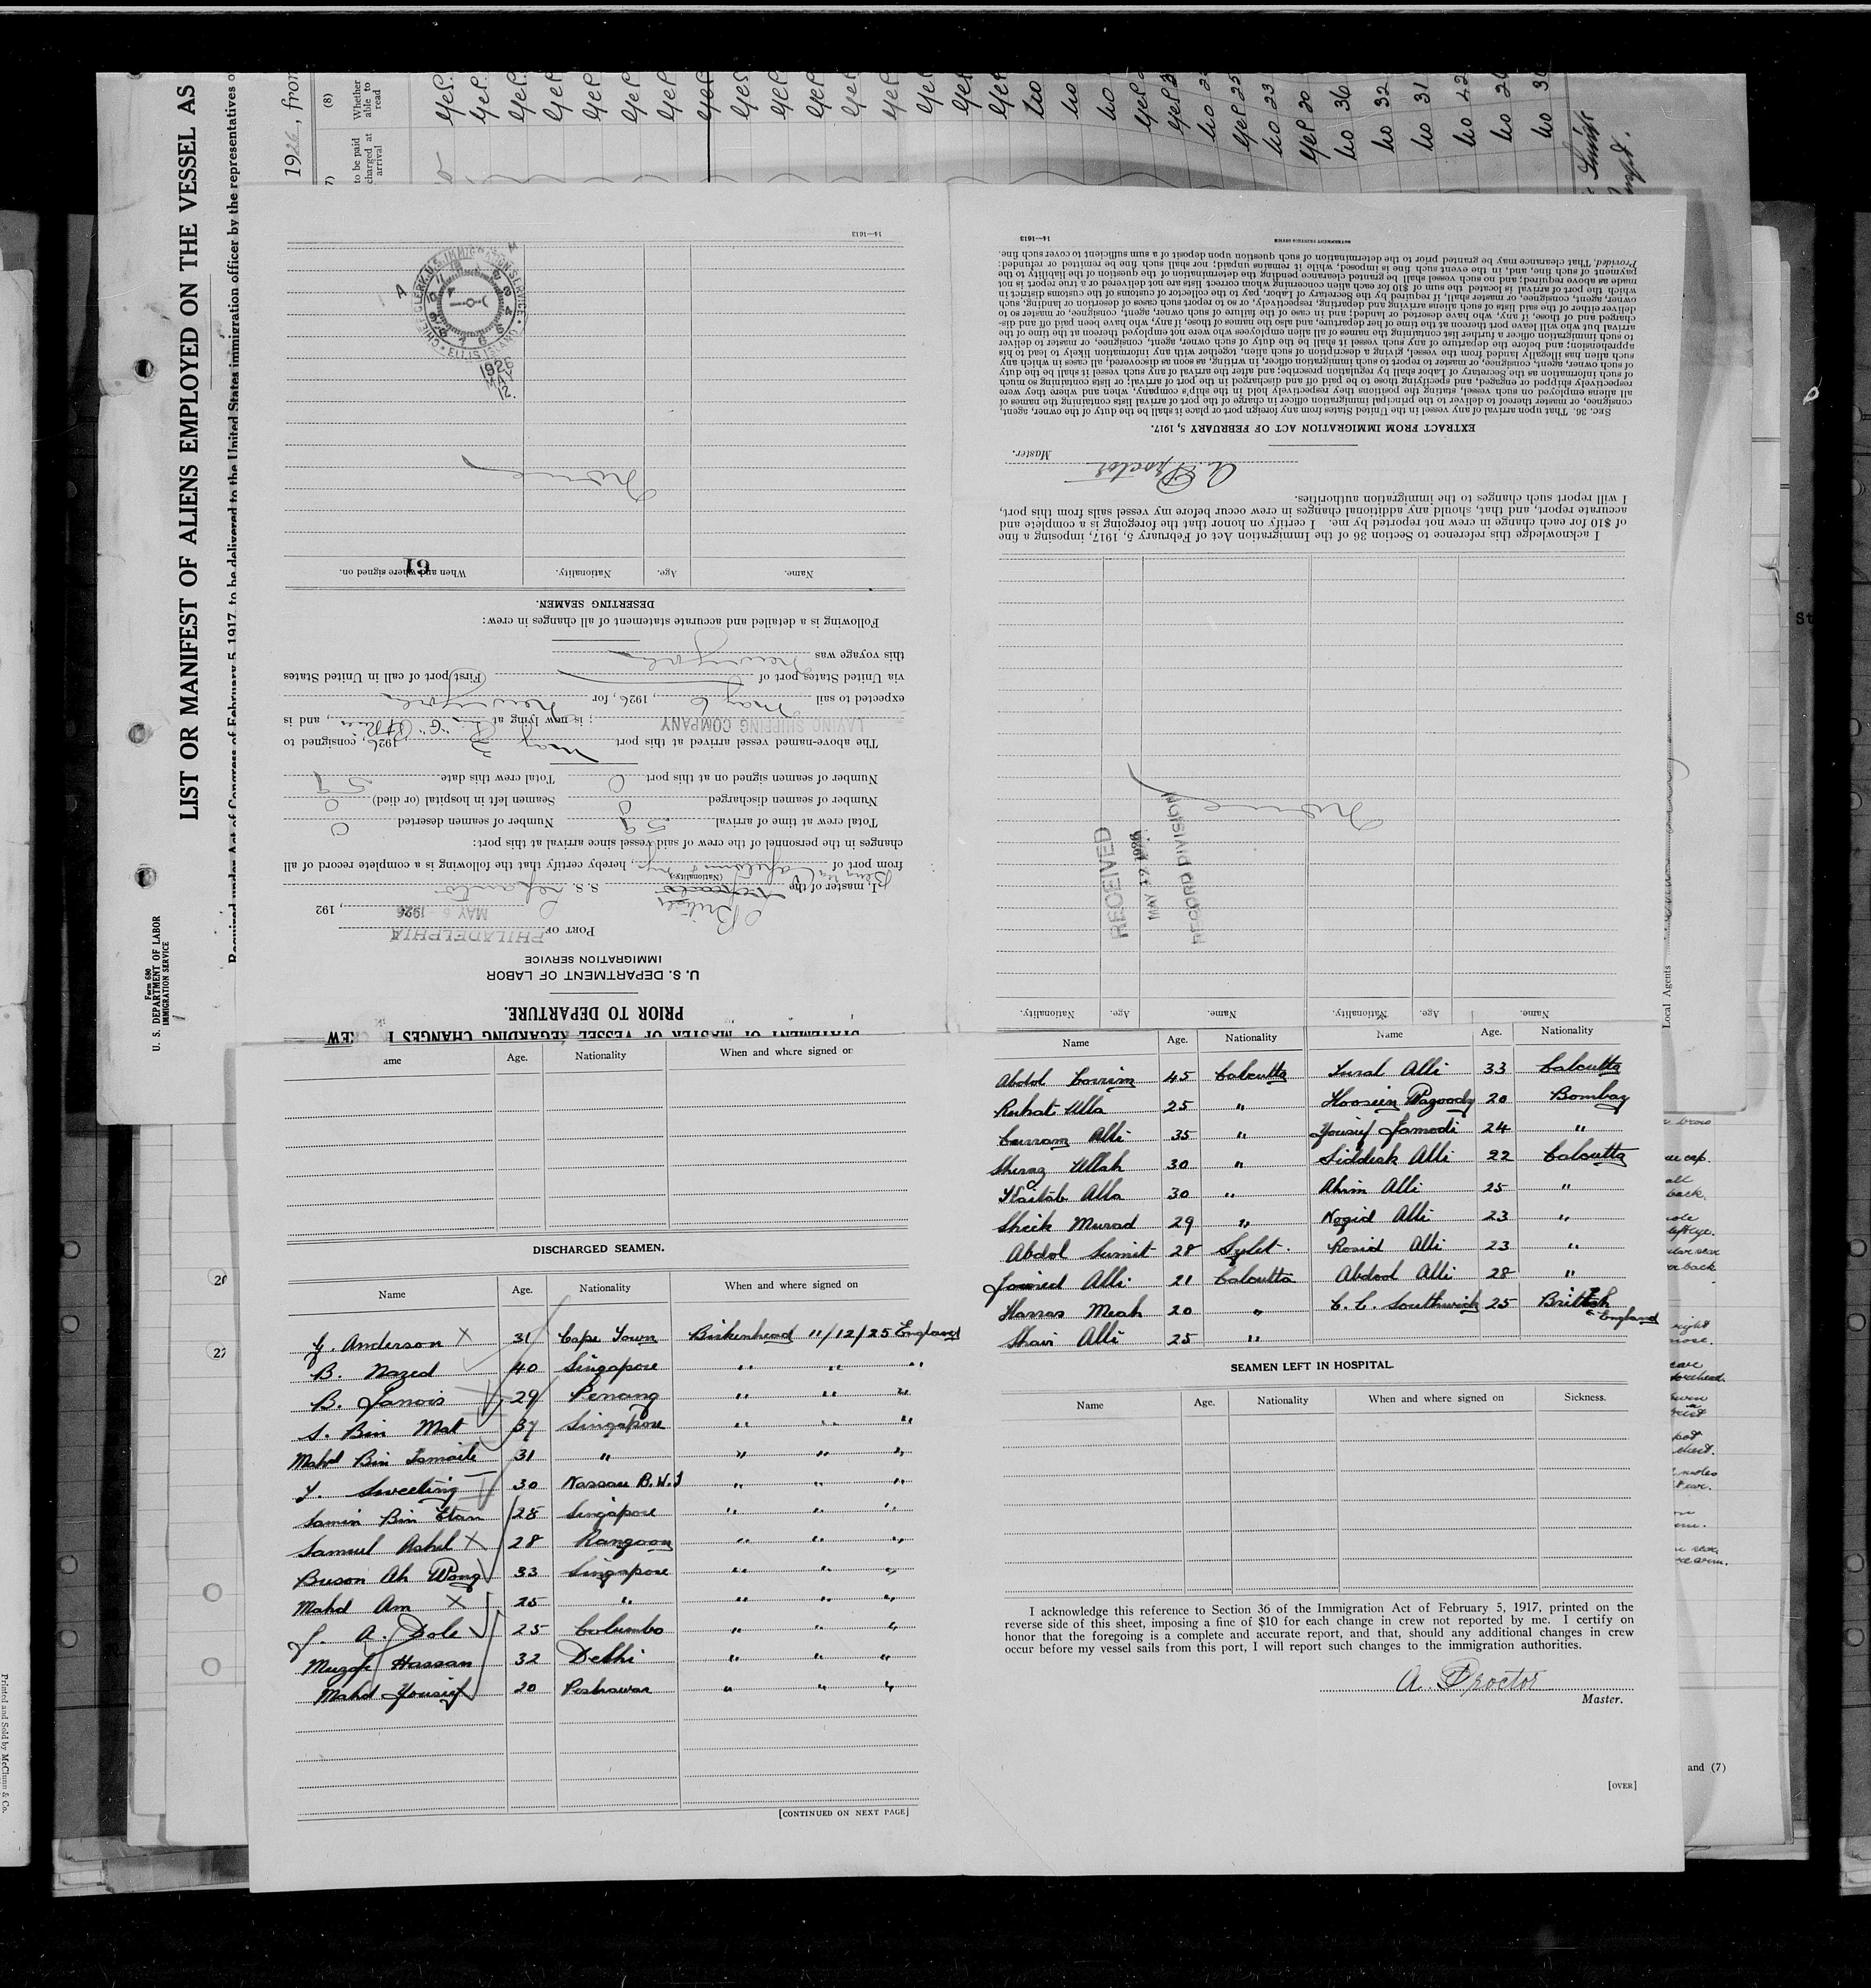 LIST OR MANIFEST OF ALIENS EMPLOYED ON THE VESSEL AS
Required under Act of Congress of February 5, 1917, to be delivered to the United States immigration officer by the representatives o
Form 680
U. S. DEPARTMENT OF LABOR
IMMIGRATION SERVICE
1926, from
(8)
Whether able to read
to be paid
charged at
arrival
STATEMENT OF MASTER OF VESSEL REGARDING CHANGES I CREW
PRIOR TO DEPARTURE.
U. S. DEPARTMENT OF LABOR
IMMIGRATION SERVICE
PORT OF PHILADELPHIA
MAY 6 - 1926, 192
British
I, master of the S. S.
(Nationality.)
from port of , hereby certify that the following is a complete record of all
changes in the personnel of the crew of said vessel since arrival at this port:
Total crew at time of arrival 59 Number of seamen deserted 0
Number of seamen discharged 0 Seamen left in hospital (or died) 0
Number of seamen signed on at this port 0 Total crew this date 59
The above-named vessel arrived at this port May 3, 1926, consigned to
LAVINO SHIPPING COMPANY ; is now lying at Pier "G" , and is
expected to sail May 6, 1926, for New York
via United States port of First port of call in United States
this voyage was New York
Following is a detailed and accurate statement of all changes in crew:
DESERTING SEAMEN.
Name. Age. Nationality. When and where signed on.
61
None
CHIEF CLERK, U. S. IMMIGRATION SERVICE
ELLIS ISLAND
1926
MAY
12.
14—1613
Name. Age. Nationality. Name. Age. Nationality.
None
RECEIVED
MAY 12 1926
RECORD DIVISION
I acknowledge this reference to Section 36 of the Immigration Act of February 5, 1917, imposing a fine
of $10 for each change in crew not reported by me. I certify on honor that the foregoing is a complete and
accurate report, and that, should any additional changes in crew occur before my vessel sails from this port,
I will report such changes to the immigration authorities.
A. Proctor
Master.
EXTRACT FROM IMMIGRATION ACT OF FEBRUARY 5, 1917.
SEC. 36. That upon arrival of any vessel in the United States from any foreign port or place it shall be the duty of the owner, agent,
consignee, or master thereof to deliver to the principal immigration officer in charge of the port of arrival lists containing the names of
all aliens employed on such vessel, stating the positions they respectively hold in the ship's company, when and where they were
respectively shipped or engaged, and specifying those to be paid off and discharged in the port of arrival; or lists containing so much
of such information as the Secretary of Labor shall by regulation prescribe; and after the arrival of any such vessel it shall be the duty
of such owner, agent, consignee, or master to report to such immigration officer, in writing, as soon as discovered, all cases in which any
such alien has illegally landed from the vessel, giving a description of such alien, together with any information likely to lead to his
apprehension; and before the departure of any such vessel it shall be the duty of such owner, agent, consignee, or master to deliver
to such immigration officer a further list containing the names of all alien employees who were not employed thereon at the time of the
arrival but who will leave port thereon at the time of her departure, and also the names of those, if any, who have been paid off and dis-
charged and of those, if any, who have deserted or landed; and in case of the failure of such owner, agent, consignee, or master so to
deliver either of the said lists of such aliens arriving and departing, respectively, or so to report such cases of desertion or landing, such
owner, agent, consignee, or master, shall, if required by the Secretary of Labor, pay to the collector of customs of the customs district in
which the port of arrival is located the sum of $10 for each alien concerning whom correct lists are not delivered or a true report is not
made as above required; and no such vessel shall be granted clearance pending the determination of the question of the liability to the
payment of such fine, and, in the event such fine is imposed, while it remains unpaid; nor shall such fine be remitted or refunded:
Provided, That clearance may be granted prior to the determination of such question upon deposit of a sum sufficient to cover such fine.
14—1613
GOVERNMENT PRINTING OFFICE
ame Age. Nationality When and where signed or
DISCHARGED SEAMEN.
Name Age. Nationality When and where signed on
J. Anderson X 31 Cape Town Birkenhead 11/12/25 England
B. Nazed 40 Singapore " " "
B. Janois 29 Penang " " "
S. Bin Mat 37 Singapore " " "
Mahd Bin Ismaile 31 " " " "
Y. Sweeting 30 Nassau B.W.I " " "
Samin Bin Etam 28 Singapore " " "
Samuel Ashel X 28 Rangoon " " "
Buson Ah Wong 33 Singapore " " "
Mahd Am X 25 " " " "
J. A. Dole 25 Colombo " " "
Muzafe Hassan 32 Delhi " " "
Mahd Yousif 20 Peshawar " " "
[CONTINUED ON NEXT PAGE]
Name Age. Nationality Name Age. Nationality
Abdol Corrim 45 Calcutta Sural Alli 33 Calcutta
Rushat Ulla 25 " Hoosein Pagoody 20 Bombay
Curram Alli 35 " Yousif Jamodi 24 "
Sheraz Ullah 30 " Siddick Alli 22 Calcutta
Kaitab Alla 30 " Ahim Alli 25 "
Sheik Murad 29 " Nogid Alli 23 "
Abdol Sumit 28 Sylet. Rosid Alli 23 "
Joinied Alli. 21 Calcutta Abdool Alli 28 "
Hassas Meah 20 " C. C. Southwick 25 British
England
Shavi Alli 25 "
SEAMEN LEFT IN HOSPITAL.
Name Age. Nationality When and where signed on Sickness.
I acknowledge this reference to Section 36 of the Immigration Act of February 5, 1917, printed on the
reverse side of this sheet, imposing a fine of $10 for each change in crew not reported by me. I certify on
honor that the foregoing is a complete and accurate report, and that, should any additional changes in crew
occur before my vessel sails from this port, I will report such changes to the immigration authorities.
A. Proctor
Master.
[OVER]
and (7)
Local Agents
Printed and Sold by McClunn & Co.